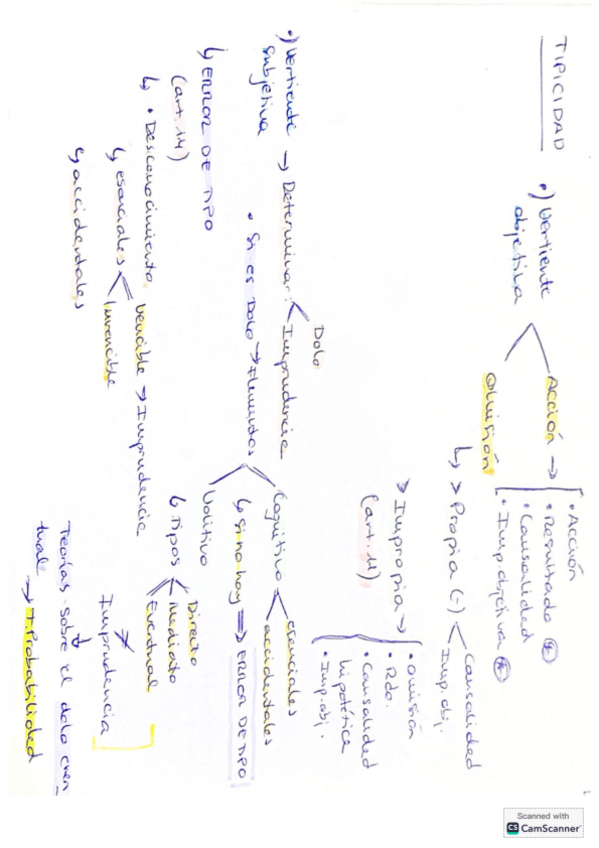 TIPICIDAD
•) Vertiente
objetiva
Acción →
• Acción
• Resultado *
• Causalidad
• Imp. objetiva *
Omisión
↳ > Propia (-)
Causalidad
Imp. obj.
> Impropia →
(art. 11)
• Omisión
• Rdo.
• Causalidad
hipotética
• Imp. obj.
•) Vertiente → Determinar:
subjetiva
Dolo
Imprudencia
• Si es Dolo → Elementos
Cognitivo
esenciales
accidentales
↳ Si no hay ⇒ ERROR DE TIPO
Volitivo
↳ Tipos
Directo
Mediato
Eventual
≠
Imprudencia
Teorías sobre el dolo even
tual
→ T. Probabilidad
↳ ERROR DE TIPO
(art. 14)
↳ • Desconocimiento
↳ esenciales
vencible → Imprudencia
Invencible
↳ accidentales
Scanned with
CS CamScanner